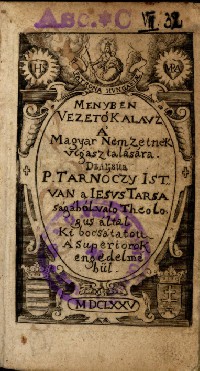 ABC.*C VII. 32
IHS
MRA
PATRONA HUNGARIÆ
MENYBEN
VEZETŐ KALAUZ
A'
Magyar Nemzetnek
vigasztalására.
P. TARNOCZY IST.
VAN a IESUS TARSA
ságából való Theolo-
gus által
Ki bocsátatott
A Superiorok
engedelmé
bül.
MDCLXXV